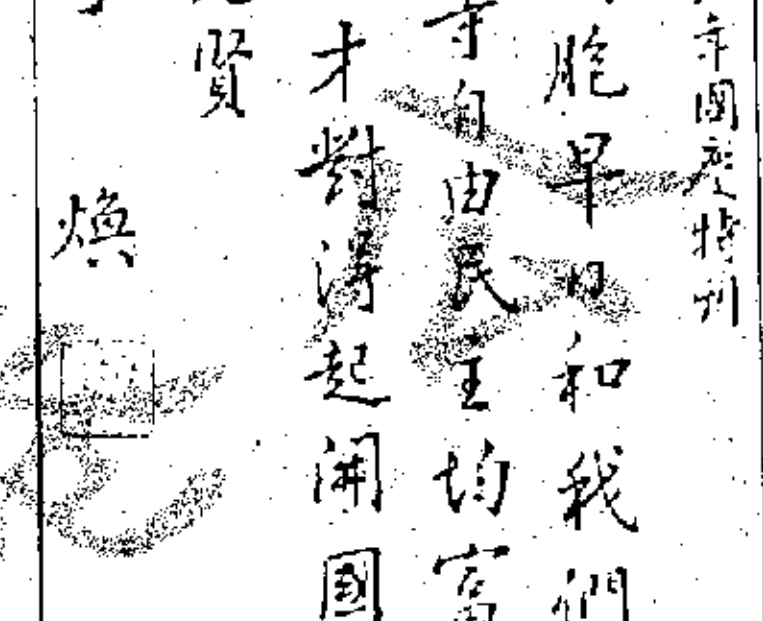 年國慶特刊
胞早日和我們
享自由民主均富
才對得起開國
賢
煥